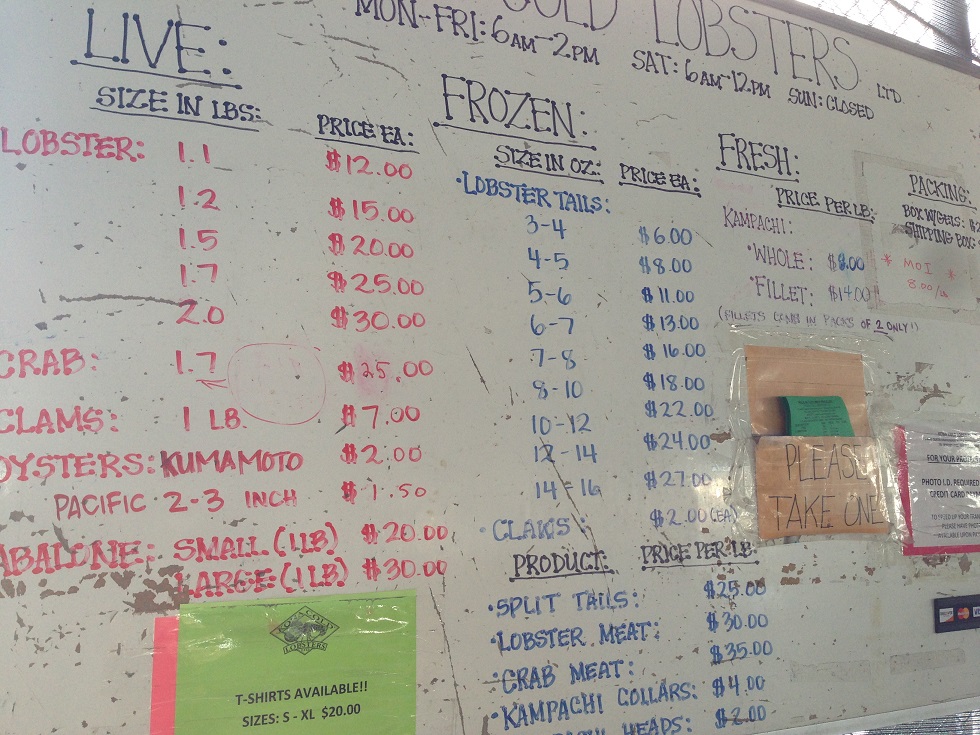 LOBSTERS LTD.
MON-FRI: 6AM-2PM SAT: 6AM-12PM SUN: CLOSED
LIVE:
SIZE IN LBS: PRICE EA:
LOBSTER: 1.1 $12.00
1.2 $15.00
1.5 $20.00
1.7 $25.00
2.0 $30.00
CRAB: 1.7 $25.00
CLAMS: 1 LB. $7.00
OYSTERS: KUMAMOTO $2.00
PACIFIC 2-3 INCH $1.50
ABALONE: SMALL (1LB) $20.00
LARGE (1LB) $30.00
KONA COLD
LOBSTERS
T-SHIRTS AVAILABLE!!
SIZES: S - XL $20.00
FROZEN:
SIZE IN OZ: PRICE EA:
•LOBSTER TAILS:
3-4 $6.00
4-5 $8.00
5-6 $11.00
6-7 $13.00
7-8 $16.00
8-10 $18.00
10-12 $22.00
12-14 $24.00
14-16 $27.00
•CLAWS: $2.00 (EA)
PRODUCT: PRICE PER LB:
•SPLIT TAILS: $25.00
•LOBSTER MEAT: $30.00
•CRAB MEAT: $35.00
•KAMPACHI COLLARS: $4.00
HEADS: $2.00
FRESH:
PRICE PER LB:
KAMPACHI:
•WHOLE: $8.00
•FILLET: $14.00
(FILLETS COME IN PACKS OF 2 ONLY!)
PACKING:
BOX W/GELS:
SHIPPING BOX:
* MOI *
8.00/LB
PLEASE
TAKE ONE
PHOTO I.D. REQUIRED
CREDIT CARD